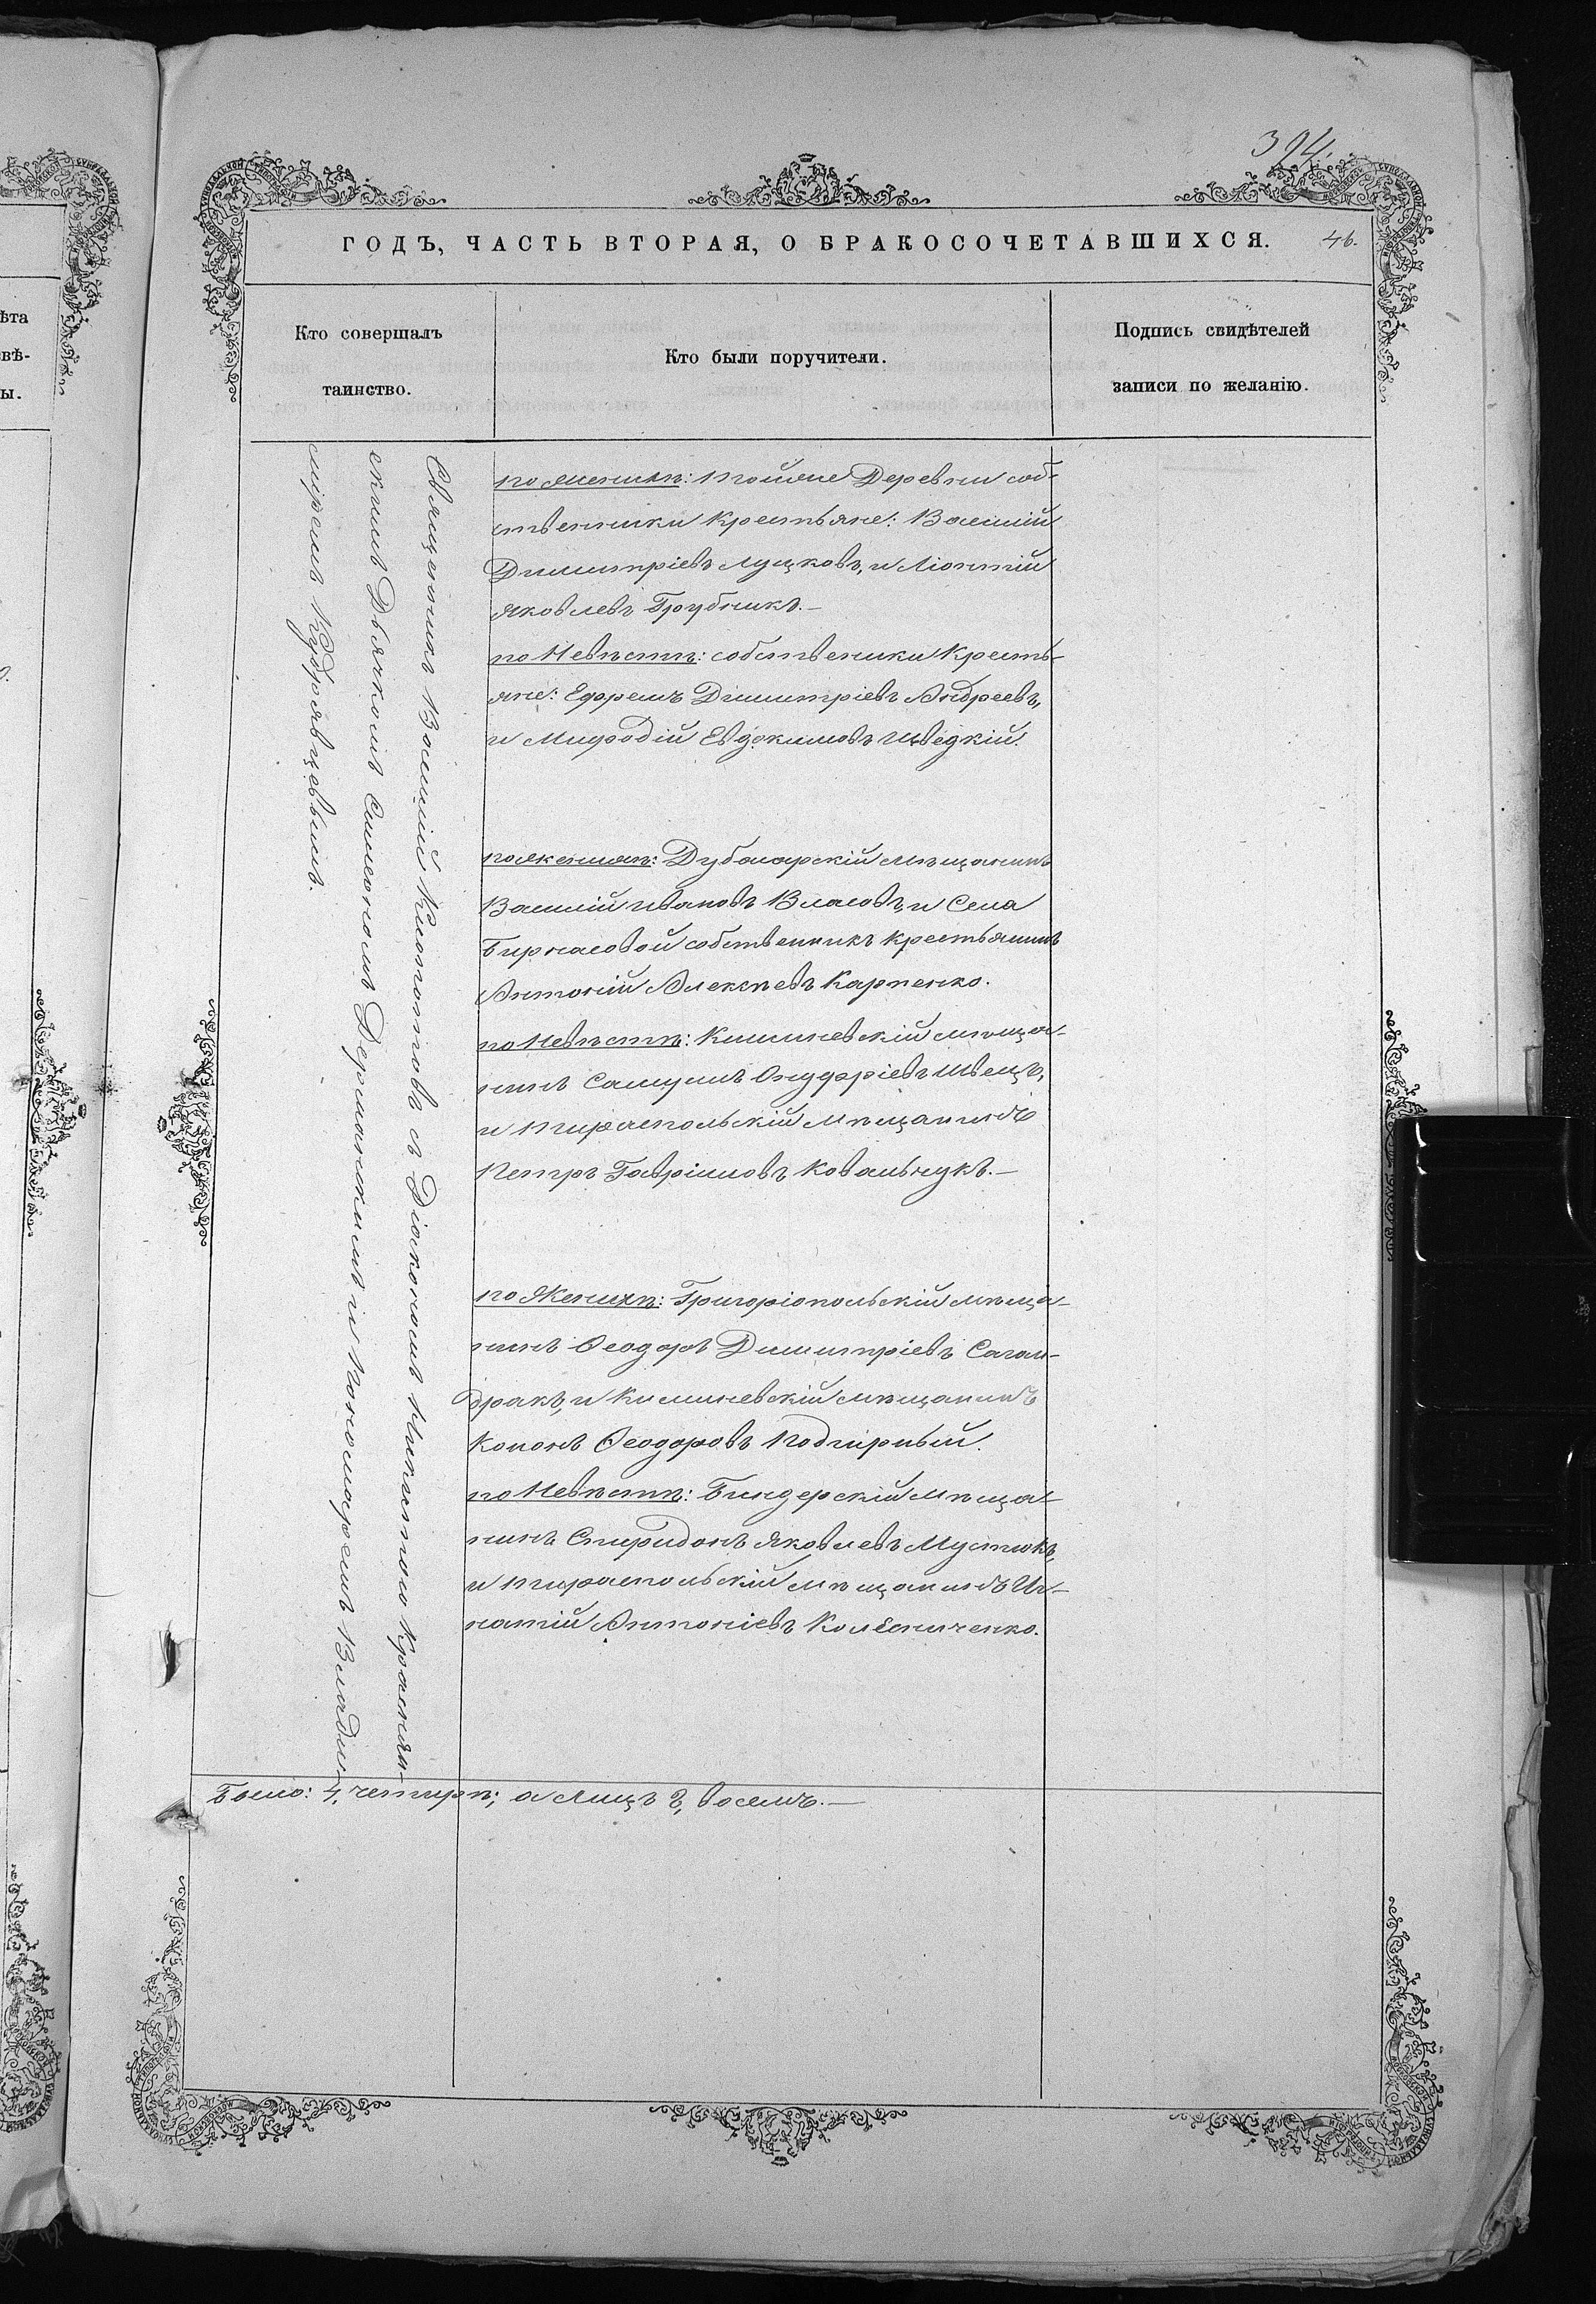 394.
ГОДЪ, ЧАСТЬ ВТОРАЯ, О БРАКОСОЧЕТАВШИХСЯ.
46.
Кто совершалъ
таинство.
Кто были поручители.
Подпись свидѣтелей
записи по желанію.
Священникъ Василій съ Діакономъ Никитою Краснян-
скимъ Дьячкомъ Симеономъ Дерманскимъ и Пономаремъ Влади-
міремъ Кудрявцевымъ.
по Женихѣ: тойже Деревни соб-
ственики Крестьяне: Василій
Димитріевъ Луцковъ, и Ліонтій
Яковлевъ Грубникъ.—
по Невѣстѣ: собственики Кресть-
яне: Ефремъ Димитріевъ Андреевъ,
и Мифодій Евдокимовъ Шведкій.
по Женихѣ: Дубосарскій мѣщанинъ
Василій Ивановъ Власовъ, и Села
Бирносовой собственникъ Крестьянинъ
Антоній Алексѣевъ Карпенко.
по Невѣстѣ: Кишиневскій мѣща-
нинъ Самуилъ Онуфріевъ Швецъ,
и Тираспольскій мѣщанинъ
Петръ Гавріиловъ Ковальчукъ.—
по Женихѣ: Григоріопольскій мѣща-
нинъ Ѳеодоръ Димитріевъ Саган-
дракъ, и Кишиневскій мѣщанинъ
Кононъ Ѳеодоровъ Подгирный.
по Невѣстѣ: Бендерскій мѣща-
нинъ Спиридонъ Яковлевъ Мустюкъ,
и Тираспольскій мѣщанинъ Иг-
натій Антоніевъ Колесниченко.
Было: 4, четире; а лицъ 8, восемъ.—
ѣта
вѣ-
ы.